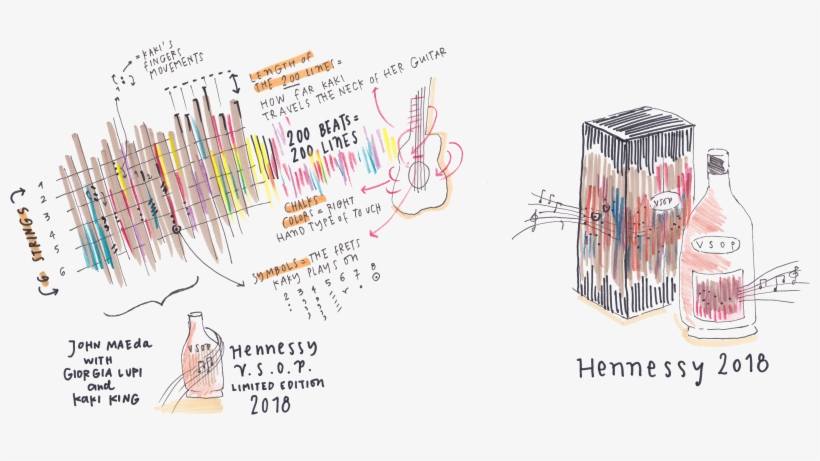 = KAKI'S
FINGERS
MOVEMENTS
LENGTH OF
THE 200 LINES =
HOW FAR KAKI
TRAVELS THE NECK OF HER GUITAR
200 BEATS =
200 LINES
CHALKS
COLORS = RIGHT
HAND TYPE OF TOUCH
SYMBOLS = THE FRETS
KAKY PLAYS ON
2 3 4 5 6 7 8
6 STRINGS
1
2
3
4
5
6
JOHN MAEDA
WITH
GIORGIA LUPI
and
KAKI KING
VSOP
Hennessy
V.S.O.P.
LIMITED EDITION
2018
VSOP
VSOP
Hennessy 2018